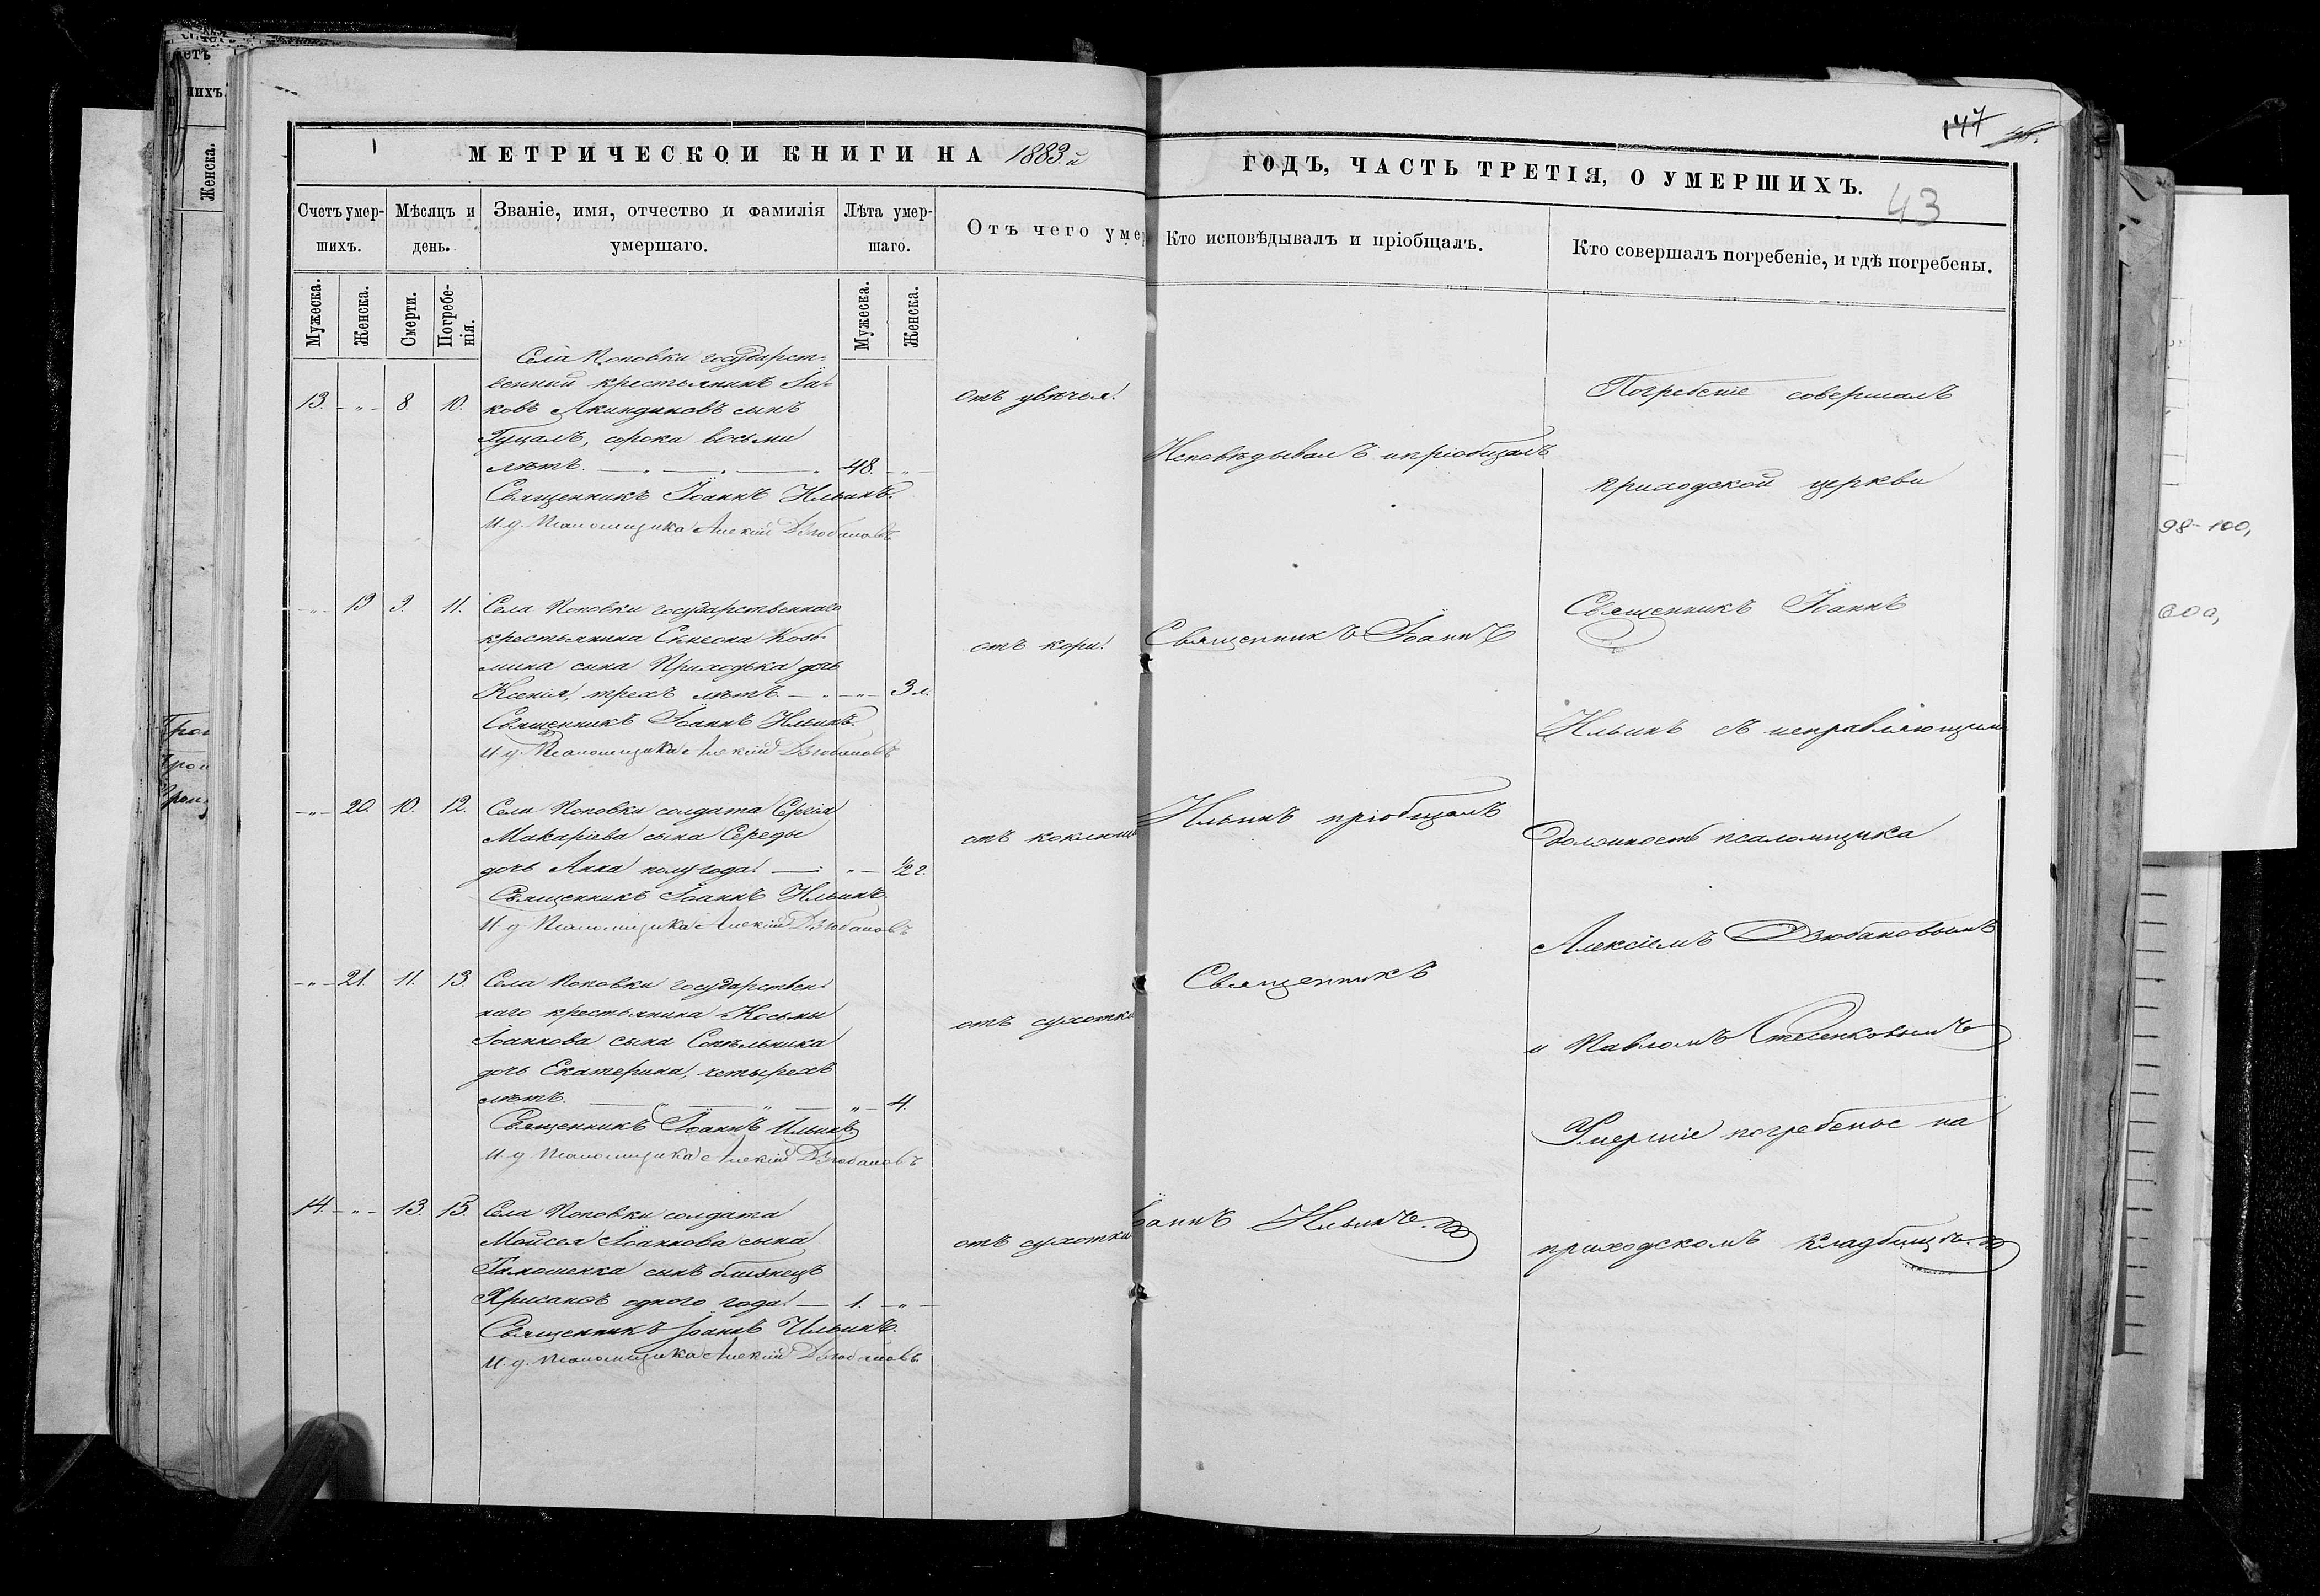 МЕТРИЧЕСКОЙ КНИГИ НА 1883й
ГОДЪ, ЧАСТЬ ТРЕТІЯ, О УМЕРШИХЪ.
147
43
Счетъ умер-
шихъ.
Мѣсяцъ и
день.
Званіе, имя, отчество и фамилія
умершаго.
Лѣта умер-
шаго.
Отъ чего умер
Кто исповѣдывалъ и пріобщалъ.
Кто совершалъ погребеніе, и гдѣ погребены.
Мужеска.
Женска.
Смерти.
Погребе-
нія.
Мужеска.
Женска.
Села Поповки государст-
венный крестьянинъ Іа-
13. - " - 8 10. ковъ Акиндиновъ сынъ
отъ увѣчья.
Гуцалъ, сорока восьми
лѣтъ. 48. "
Священникъ Іоаннъ Ильинъ.
И. д. Псаломщика Алексій Дзюбановъ
- " - 19 9. 11. Села Поповки государственнаго
крестьянина Симеона Козь-
мина сына Приходька дочь
отъ кори.
Ксенія, трехъ лѣтъ - " - 3 л.
Священникъ Іоаннъ Ильинъ.
И. д. Псаломщика Алексій Дзюбановъ
- " - 20. 10. 12. Села Поповки солдата Сергія
Макаріева сына Середы
отъ коклюш
дочь Анна полугода. " - 1/2 г.
Священникъ Іоаннъ Ильинъ.
И. д. Псаломщика Алексій Дзюбановъ
- " - 21. 11. 13. Села Поповки государствен-
наго крестьянина Косьмы
отъ сухотки
Іоаннова сына Сопѣльника
дочь Екатерина, четырехъ
лѣтъ. " - 4.
Священникъ Іоаннъ Ильинъ
И. д. Псаломщика Алексій Дзюбановъ
14. - " - 13. 15. Села Поповки солдата
Мойсея Іоаннова сына
отъ сухотки
сынъ близнецъ
Хрисанѳъ одного года. 1. - " -
Священникъ Іоаннъ Ильинъ.
И. д. Псаломщика Алексій Дзюбановъ.
Исповѣдывалъ и пріобщалъ
Священникъ Іоаннъ
Ильинъ пріобщалъ
Священникъ
Іоаннъ Ильинъ.
Погребеніе совершалъ
приходской церкви
Священникъ Іоаннъ
Ильинъ съ исправляющим
должность псаломщика
Алексіемъ Дзюбановымъ
и Павломъ Стесенковымъ
Умершіе погребены на
приходскомъ кладбищѣ.
98-100,
етъ
ихъ
Женска.